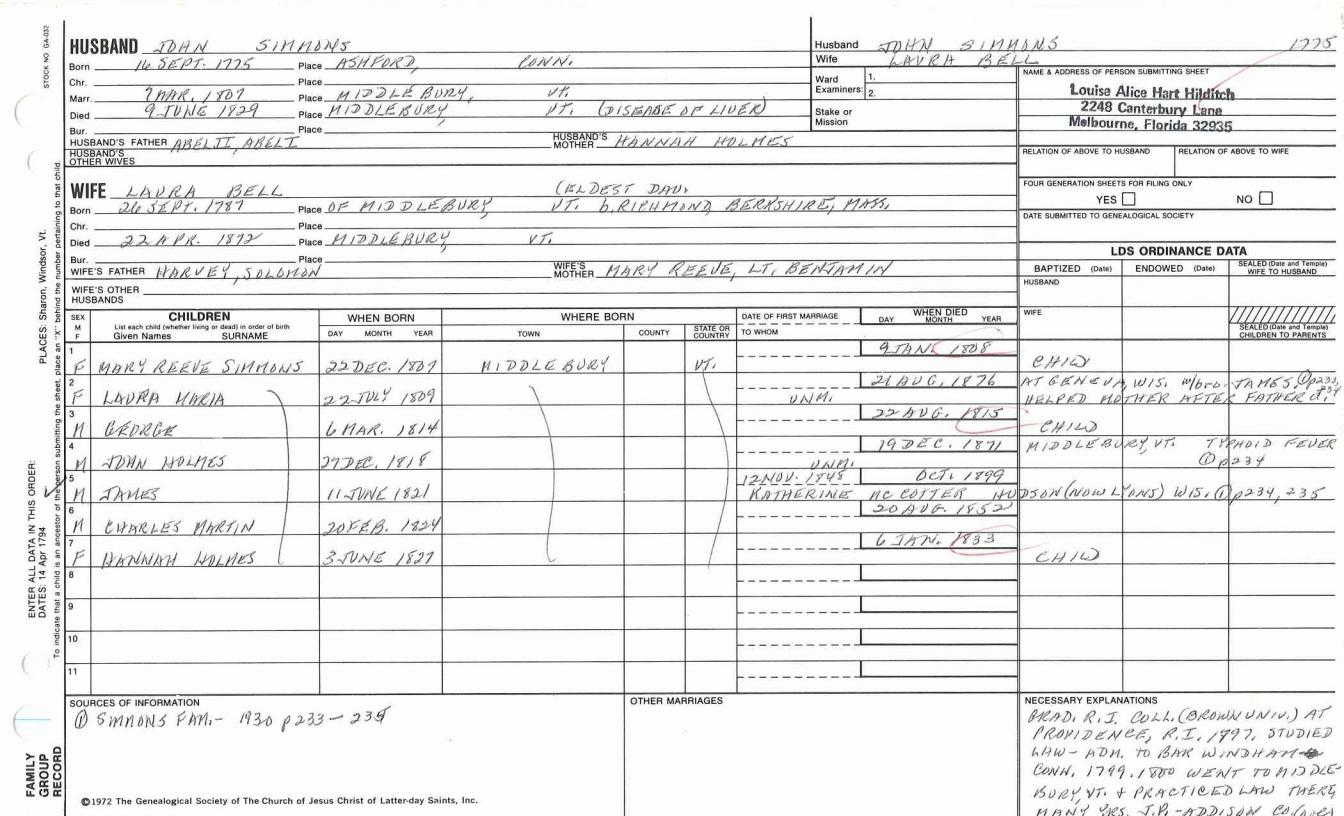 STOCK NO GA-032
HUSBAND JOHN SIMMONS
Born 16 SEPT. 1775 Place ASHFORD, CONN.
Chr. Place
Marr. MAR. 1807 Place MIDDLEBURY, VT.
Died 9 JUNE 1829 Place MIDDLEBURY, VT. (DISEASE OF LIVER)
Bur. Place
HUSBAND'S FATHER ABEL II, ABEL I HUSBAND'S MOTHER HANNAH HOLMES
HUSBAND'S OTHER WIVES
WIFE LAURA BELL (ELDEST DAU.
Born 26 SEPT. 1787 Place OF MIDDLEBURY, VT. b. RICHMOND, BERKSHIRE, MASS.
Chr. Place
Died 22 APR. 1872 Place MIDDLEBURY, VT.
Bur. Place
WIFE'S FATHER HARVEY, SOLOMON WIFE'S MOTHER MARY REEVE, LT. BENJAMIN
WIFE'S OTHER HUSBANDS
Husband JOHN SIMMONS 1775
Wife LAURA BELL
Ward Examiners: 1.
2.
Stake or Mission
NAME & ADDRESS OF PERSON SUBMITTING SHEET
Louise Alice Hart Hilditch
2248 Canterbury Lane
Melbourne, Florida 32935
RELATION OF ABOVE TO HUSBAND RELATION OF ABOVE TO WIFE
FOUR GENERATION SHEETS FOR FILING ONLY
YES NO
DATE SUBMITTED TO GENEALOGICAL SOCIETY
LDS ORDINANCE DATA
BAPTIZED (Date) ENDOWED (Date) SEALED (Date and Temple) WIFE TO HUSBAND
HUSBAND
WIFE
SEALED (Date and Temple) CHILDREN TO PARENTS
SEX M F CHILDREN WHEN BORN WHERE BORN DATE OF FIRST MARRIAGE WHEN DIED
List each child (whether living or dead) in order of birth
Given Names SURNAME DAY MONTH YEAR TOWN COUNTY STATE OR COUNTRY TO WHOM DAY MONTH YEAR
1 F MARY REEVE SIMMONS 22 DEC. 1807 MIDDLEBURY VT. 9 JAN. 1808 CHILD
2 F LAURA MARIA 22 JULY 1809 UNM. 21 AUG. 1876 AT GENEVA, WIS. w/bro. JAMES. ① p233, 234
HELPED MOTHER AFTER FATHER d.
3 M GEORGE 6 MAR. 1814 22 AUG. 1815 CHILD
4 M JOHN HOLMES 27 DEC. 1818 UNM. 19 DEC. 1871 MIDDLEBURY, VT. TYPHOID FEVER
① p234
5 M JAMES 11 JUNE 1821 12 NOV. 1848 OCT. 1899
KATHERINE MC COTTER HUDSON (NOW LYONS) WIS. ① p234, 235
6 M CHARLES MARTIN 20 FEB. 1824 20 AUG. 1852
7 F HANNAH HOLMES 3 JUNE 1827 6 JAN. 1833 CHILD
8
9
10
11
SOURCES OF INFORMATION
① SIMMONS FAM. - 1930 p233-235
OTHER MARRIAGES
NECESSARY EXPLANATIONS
GRAD. R.I. COLL. (BROWN UNIV.) AT
PROVIDENCE, R.I. 1797. STUDIED
LAW - ADM. TO BAR WINDHAM
CONN. 1799. 1800 WENT TO MIDDLE-
BURY, VT. & PRACTICED LAW THERE
MANY YRS. J.P. - ADDISON CO.
©1972 The Genealogical Society of The Church of Jesus Christ of Latter-day Saints, Inc.
FAMILY GROUP RECORD
ENTER ALL DATA IN THIS ORDER:
DATES: 14 Apr 1794 PLACES: Sharon, Windsor, Vt.
To indicate that a child is an ancestor of the person submitting the sheet, place an "X" behind the number pertaining to that child.